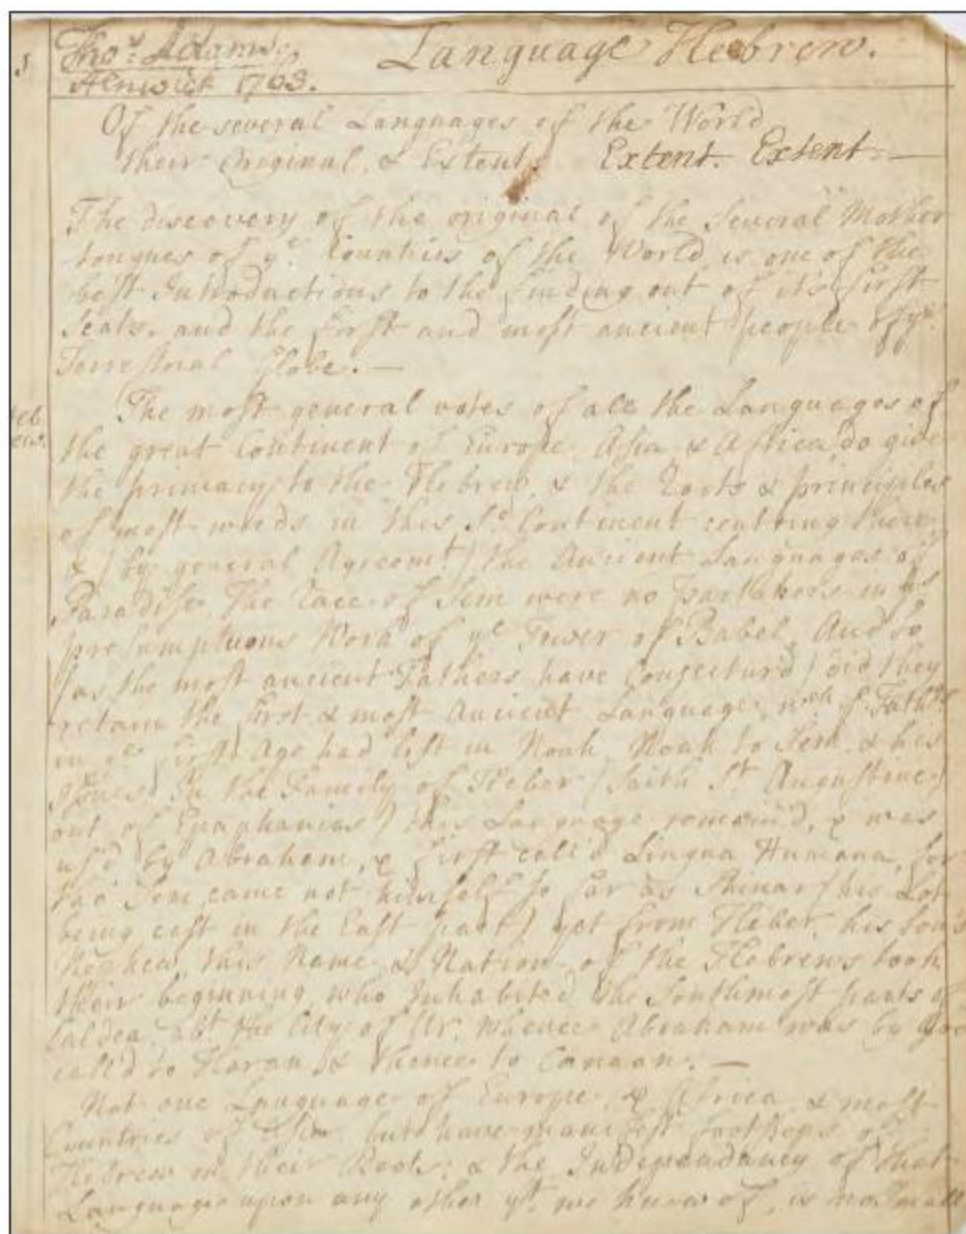 Tho.s Adams,
Alnwick 1703.
Language Hebrew.
Of the several Languages of the World
their Original, & Extent. Extent. Extent. —
The discovery of the original of the several Mother
tongues of y.e Countries of the World, is one of the
best Introductions to the finding out of it's first
Seats, and the first and most ancient people of y.e
Terrestrial Globe. —
Heb
rew.
The most general votes of all the Languages of
the great Continent of Europe, Asia & Africa, do give
the primacy to the Hebrew, & the Roots & principles
of most words in this s.d Continent centring there
& (by general Agreem.t) the Ancient Languages of
Paradise. The Race of Sem were no partakers in y.t
presumptuous Work of y.e Tower of Babel, And so
(as the most ancient Fathers have Conjectur'd) did they
retain the first & most Ancient Language, w.ch y.e Fath.rs
in y.e first Age had left in Noah, Noah to Sem, & his
In the Family of Heber (saith S.t Augustine
out of Epaphanias) this Language remain'd, & was
us'd by Abraham, & first call'd Lingua Humana, for
tho' Sem came not himself so far as Shinar (his Lot
being cast in the East part) yet from Heber, his Son's
Nephew, this Name & Nation of the Hebrews took
their beginning, who Inhabited the Southmost parts of
Caldea, ab.t the City of Ur, whence Abraham was by God
call'd to Haran, & thence to Canaan. —
Not one Language of Europe, & Africa & most
Countries of Asia but have manifest footsteps of
Hebrew in their Roots; & the Independancy of that
Language upon any other y.t we know of, is no small